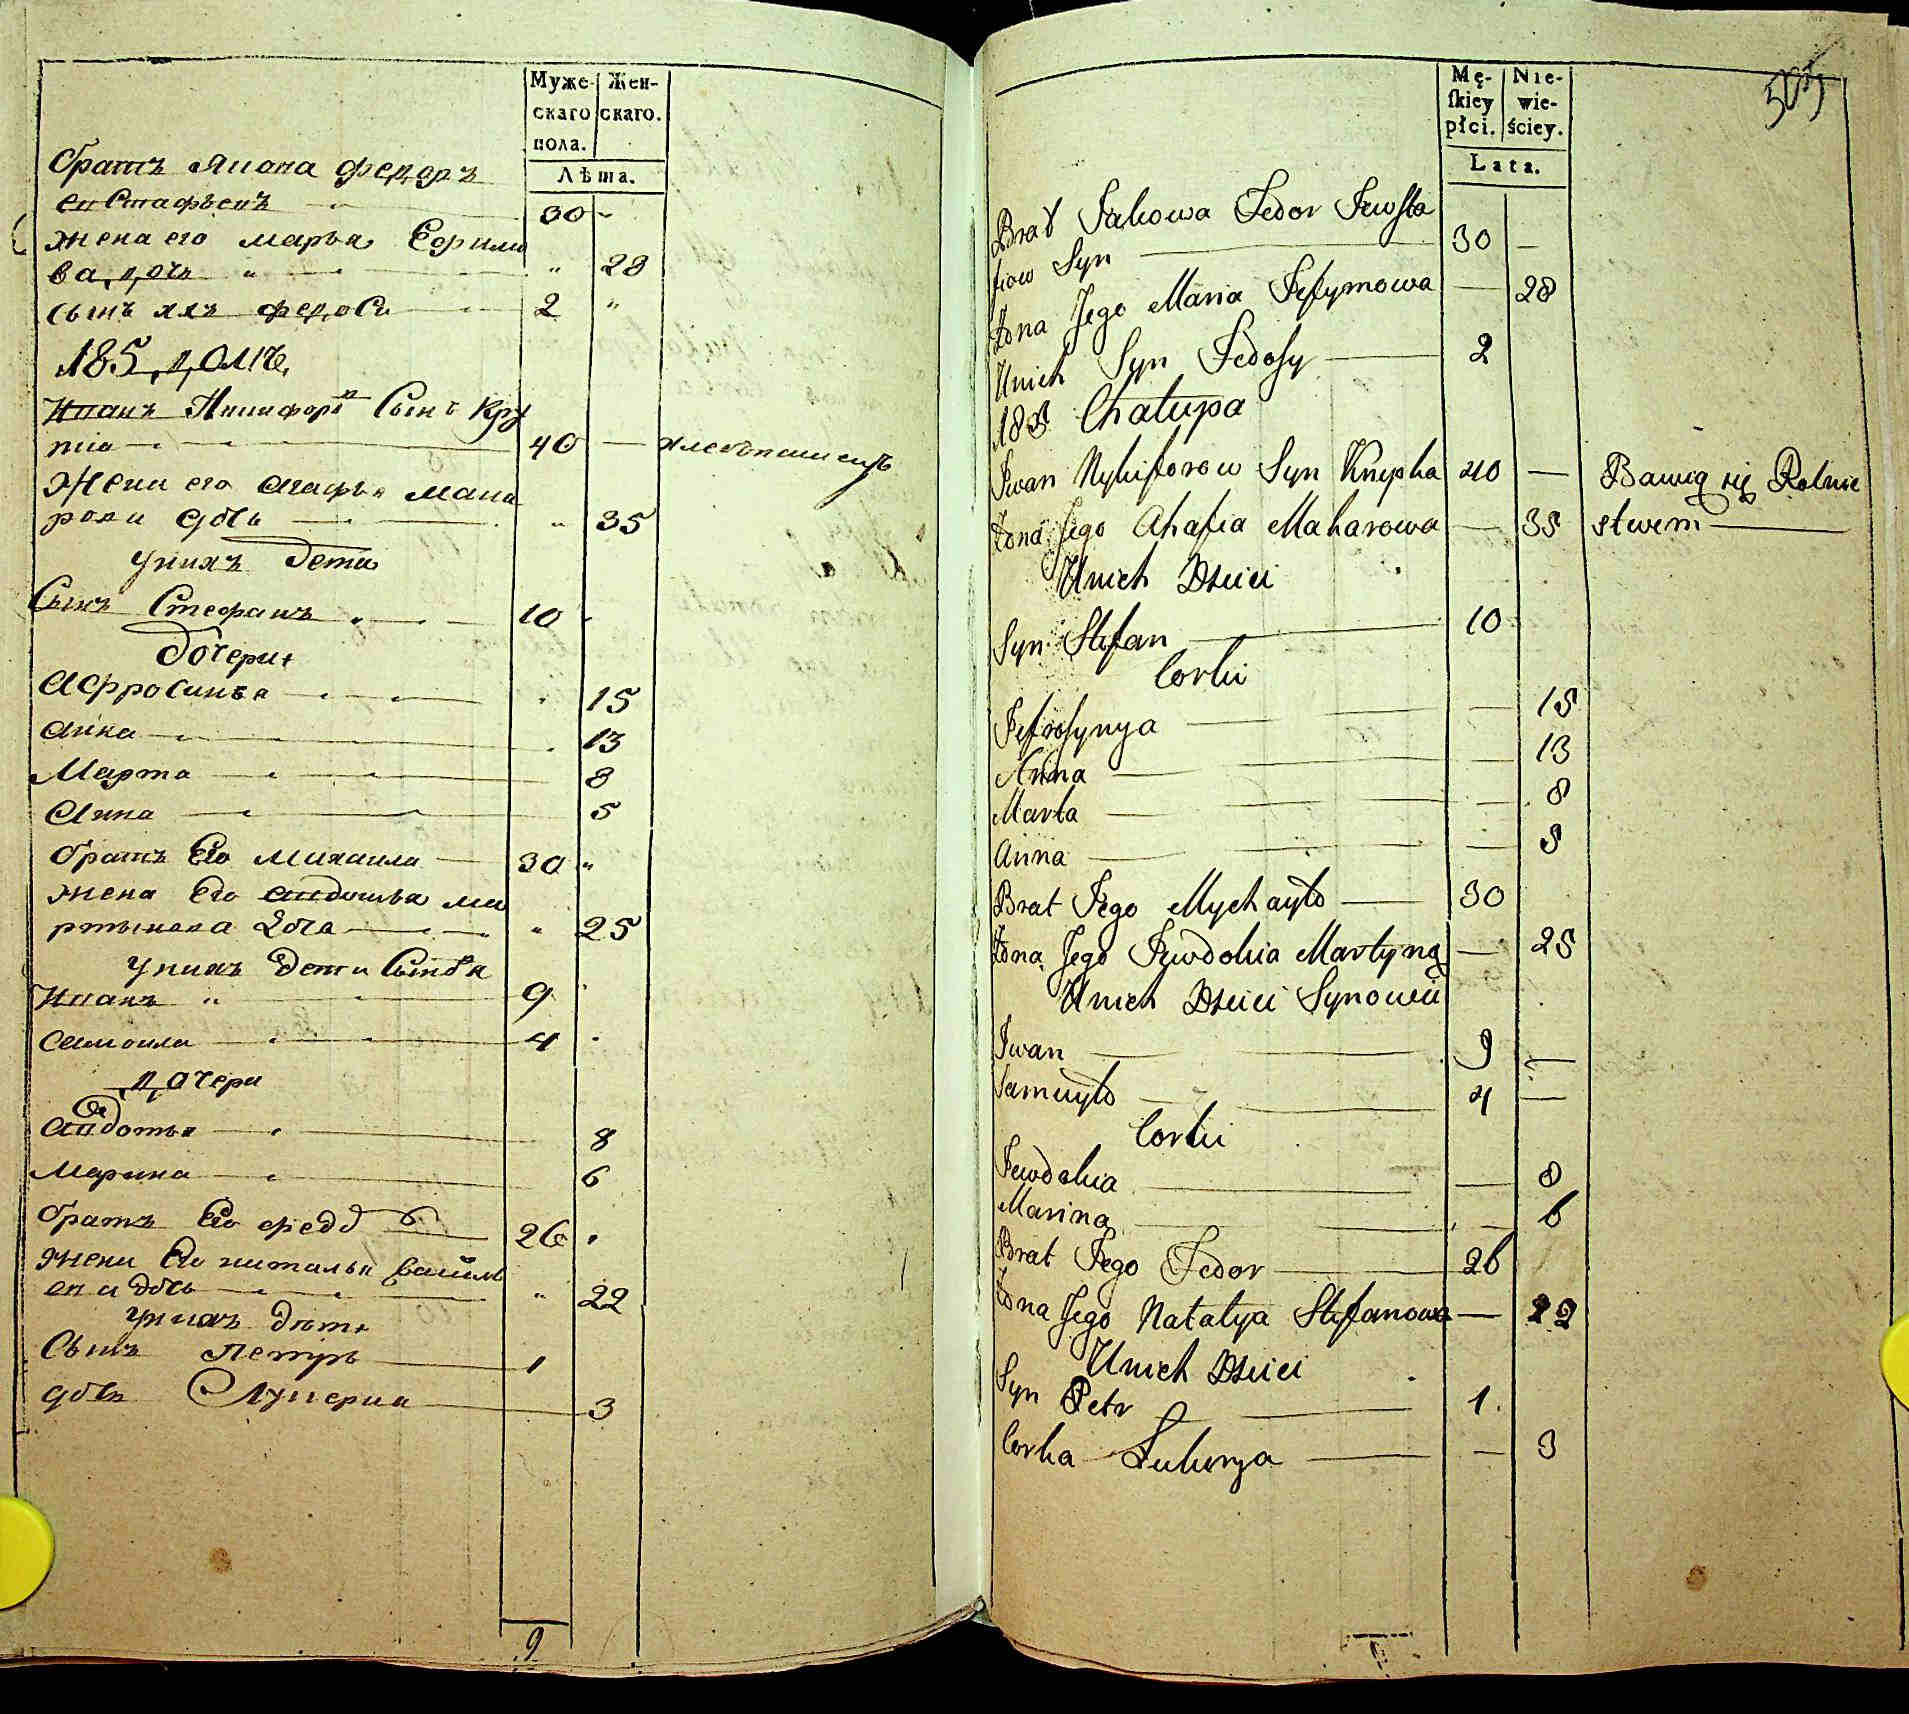 Муже-
скаго
пола.
Жен-
скаго.
Лѣта.
братъ Якова Федоръ
евстафьевъ 30
жена его марья Ефимо
ва дочь 28
сынъ ихъ федоси 2
185 домъ
Иванъ Никифоровъ Сынъ Кру
пка 40 хлебопашецъ
Жена его агафья мака
рова дочь 35
у нихъ дети
Сынъ Стефанъ 10
дочери
Афросинья 15
анна 13
Марта 8
Анна 5
братъ Его михаила 30
жена Его авдотья ма
ртынова дочь 25
у нихъ дети Сыновя
Иванъ 9
самоила 4
дочери
авдотья 8
марина 6
братъ Его федоръ 26
жена Его наталья
дочь 22
у нихъ дети
Сынъ петръ 1
дочь Лукерия 3
9
Mę-
skiey
płci.
Nie-
wie-
ściey.
Lata.
505
Brat Jakowa Fedor Jewsta
fiow Syn 30
Żona Jego Maria Jefymowa 28
Unich Syn Fedosy 2
185 Chałupa
Iwan Nykiforow Syn Krupka 40 Bawią się Rolnic
Żona Jego Ahafia Makarowa 35 stwem
Unich Dzieci
Syn Stefan 10
Corki
Jefrosynya 15
Anna 13
Marta 8
Anna 5
Brat Jego Mychayło 30
Żona Jego Jewdokia Martyno 25
Unich Dzieci Synowie
Iwan 9
Samuyło 4
Corki
Jewdokia 8
Marina 6
Brat Jego Fedor 26
Żona Jego Natalya Stefanowa 22
Unich Dzieci
Syn Petr 1
Corka Łukerya 3